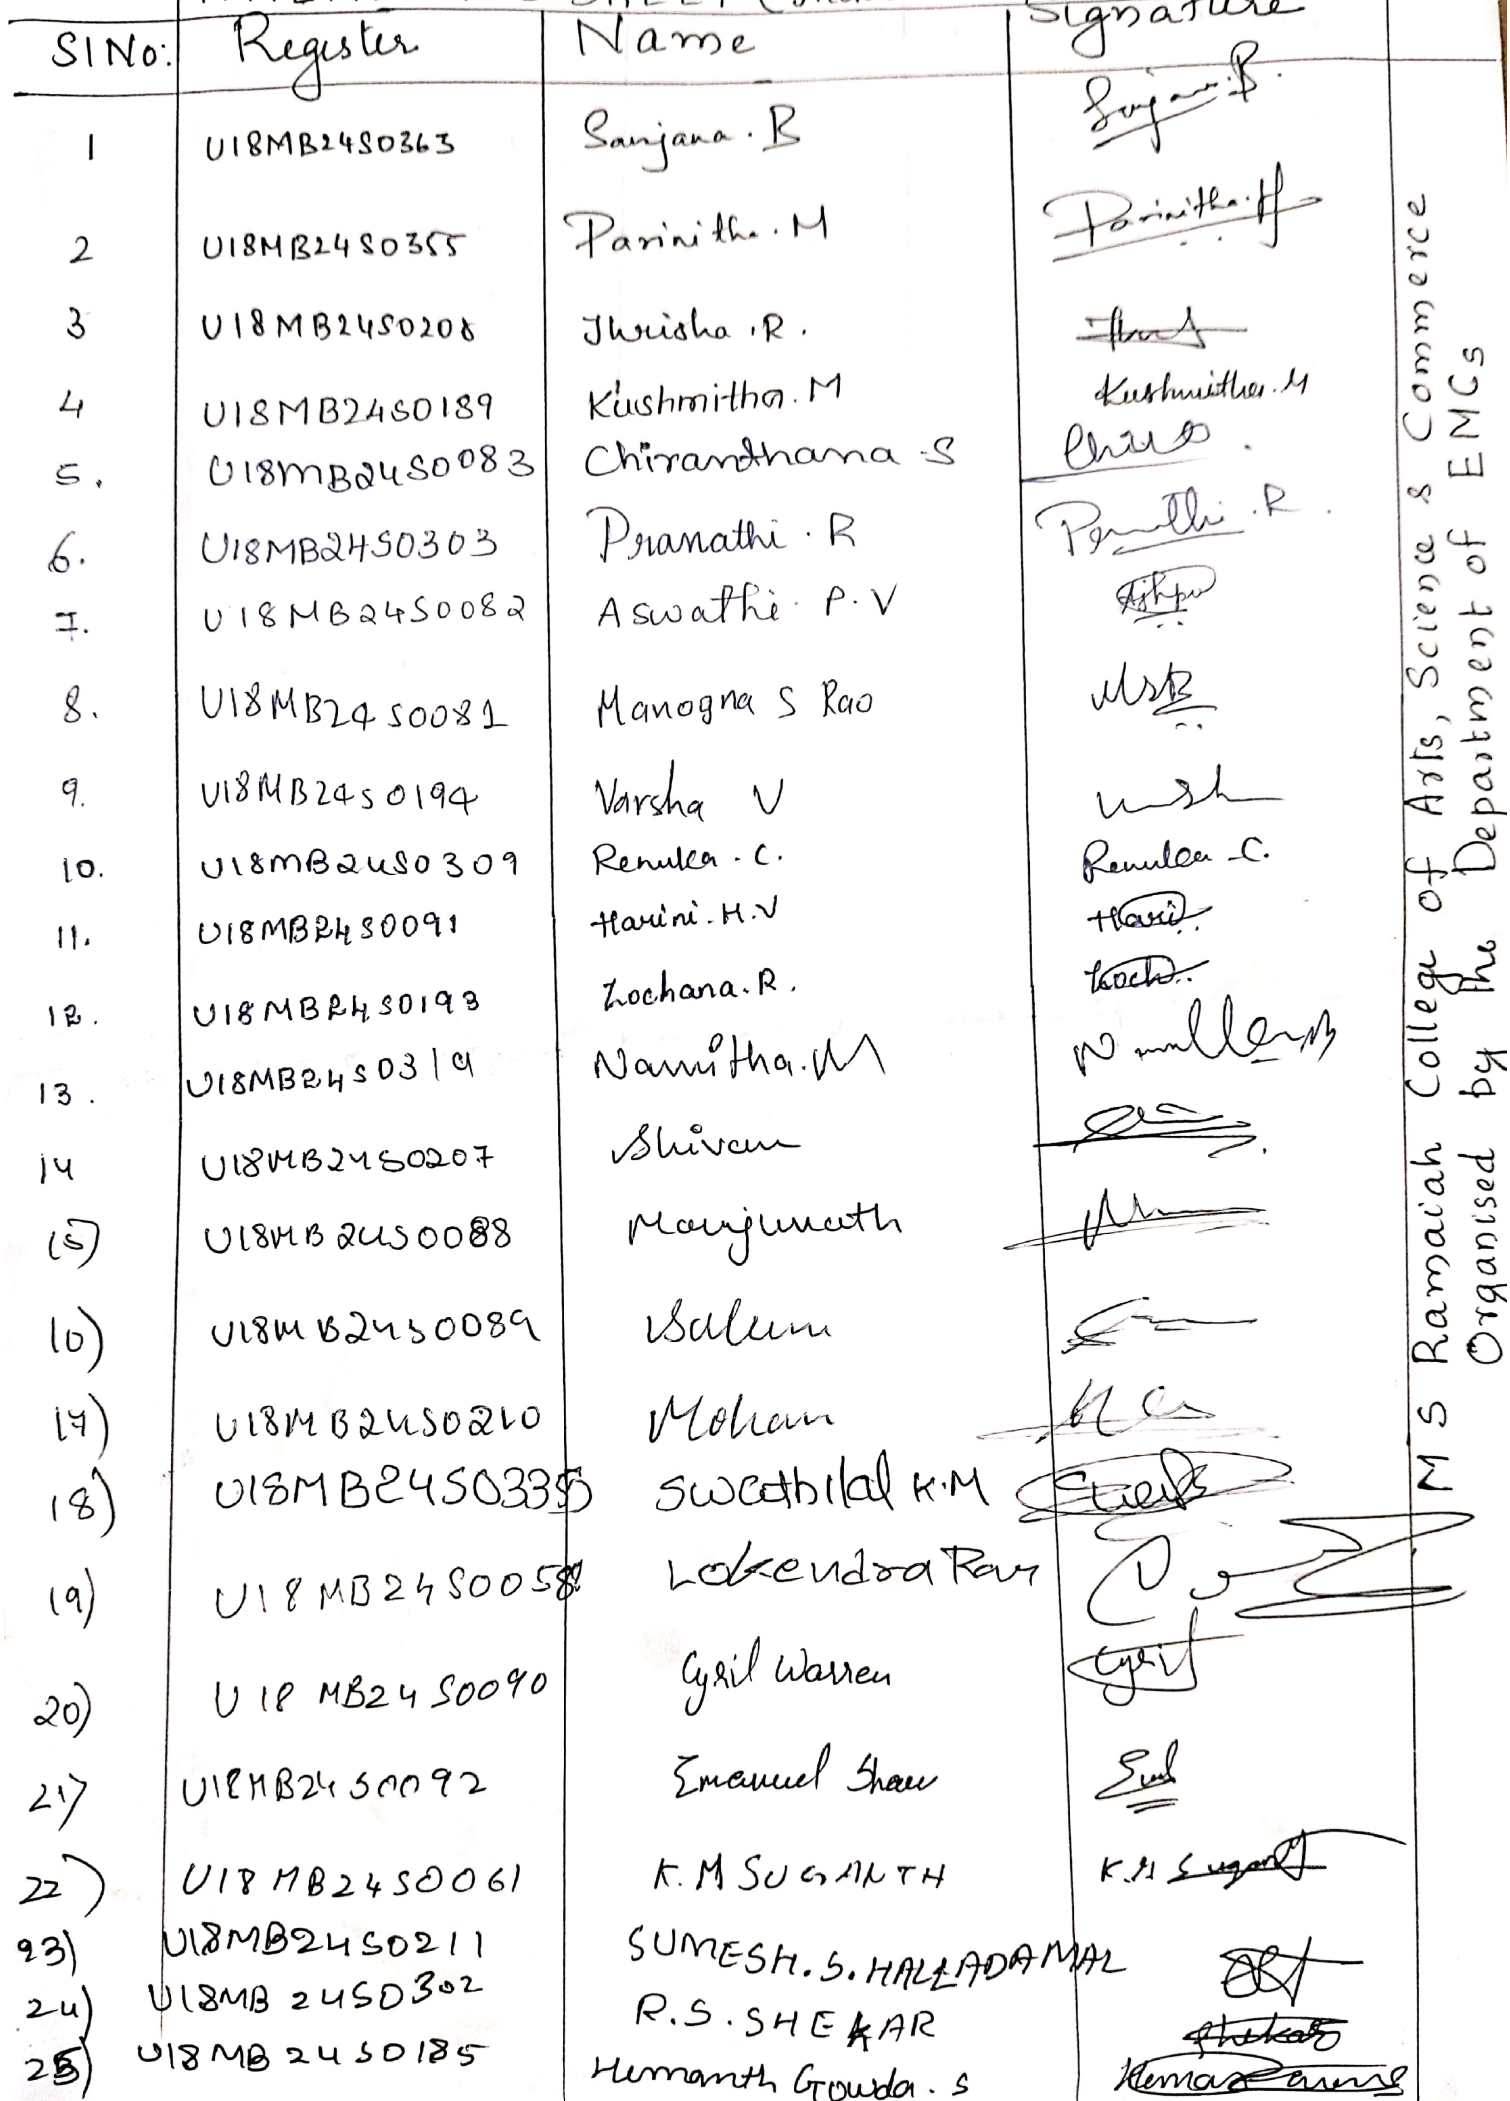 SHEET
SI No: Register Name Signature
1 U18MB24S0363 Sanjana . B
2 U18MB24S0355 Parinitha . M Parinitha. M
3 U18MB24S0208 Thrisha . R .
4 U18MB24S0189 Kushmitha. M Kushmitha. M
5. U18MB24S0083 Chirandhana S
6. U18MB24S0303 Pranathi . R
7. U18MB24S0082 Aswathi P. V
8. U18MB24S0081 Manogna S Rao MSR
9. U18MB24S0194 Varsha V
10. U18MB24S0309 Renuka . C. Renuka C.
11. U18MB24S0091 Harini. H.V Hari
12. U18MB24S0193 Lochana. R. Loch
13. U18MB24S0319 Namitha. M
14 U18MB24S0207 Shivam
15) U18MB24S0088 Manjunath
16) U18MB24S0089 Salim
17) U18MB24S0210 Mohan
18) U18MB24S0335 Swathilal K.M
19) U18MB24S0058 Lokendra Rav
20) U18MB24S0090 Cyril Warren Cyril
21) U18MB24S0092 Emanuel Shaw
22) U18MB24S0061 K. M SUGANTH K. M Sugant
23) U18MB24S0211 SUMESH. S. HALLADAMAL
24) U18MB24S0302 R. S. SHEKAR Shekar
25) U18MB24S0185 Hemanth Gowda . S
M S Ramaiah College of Arts, Science & Commerce
Organised by the Department of EMCs